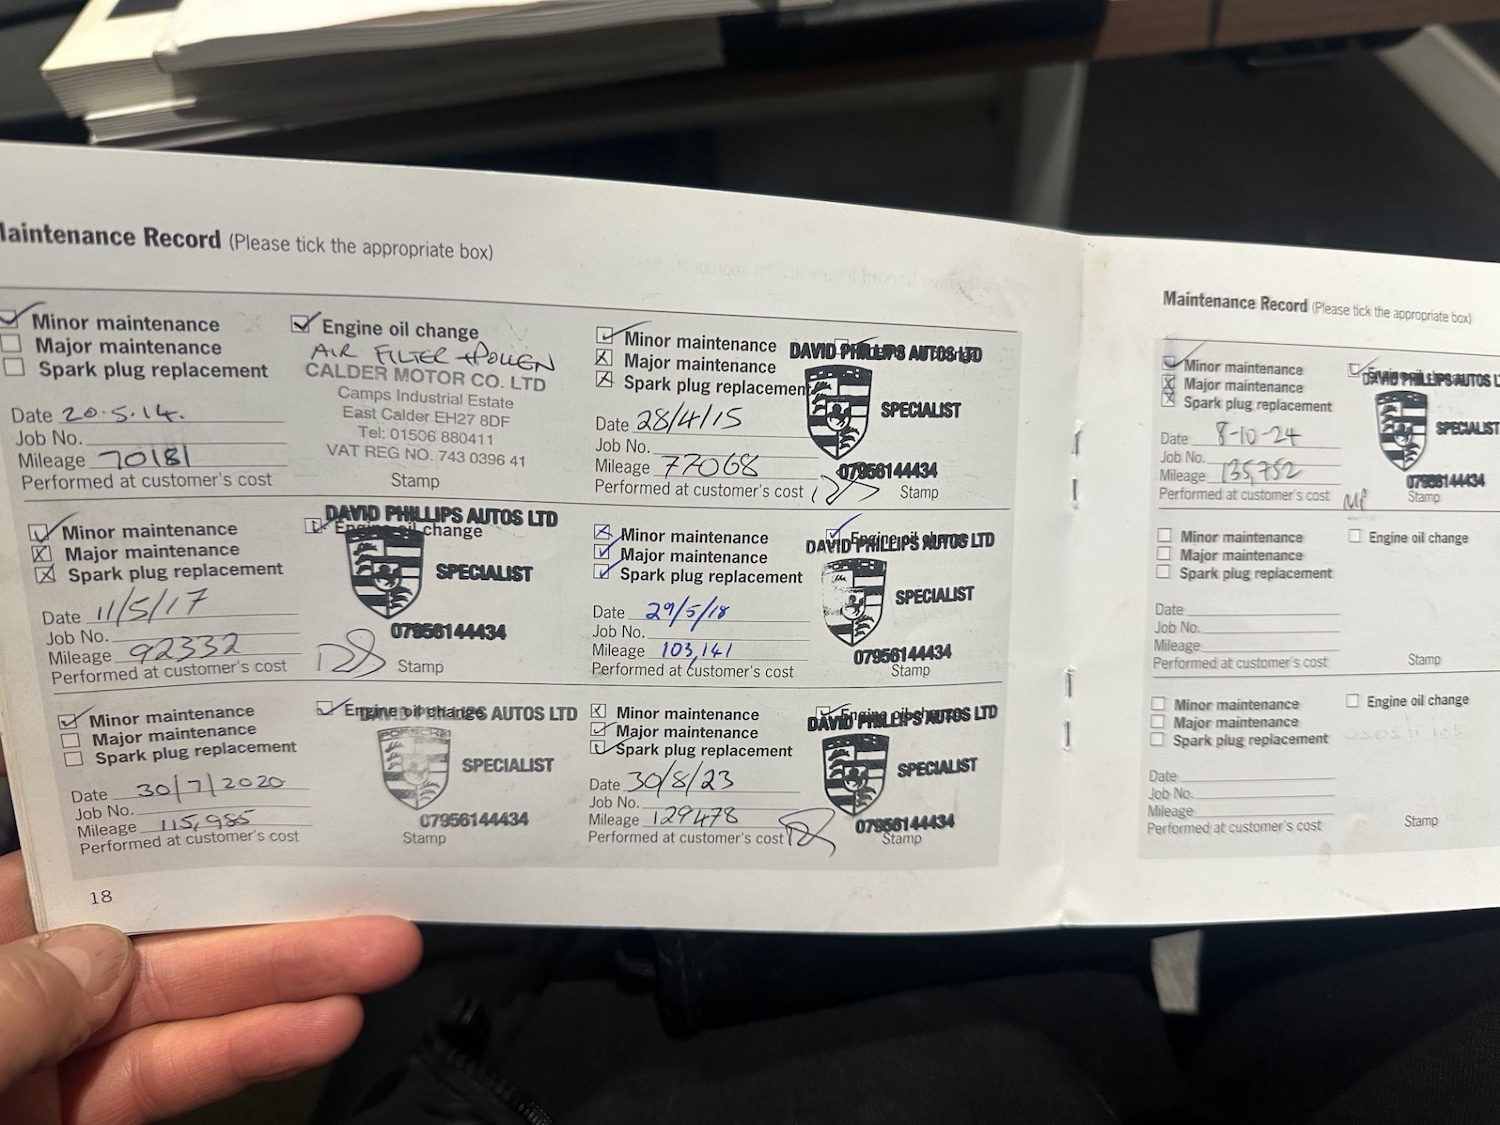 Maintenance Record (Please tick the appropriate box)
Minor maintenance
Major maintenance
Spark plug replacement
Engine oil change
AIR FILTER + POLLEN
CALDER MOTOR CO. LTD
Camps Industrial Estate
East Calder EH27 8DF
Tel: 01506 880411
VAT REG NO. 743 0396 41
Date 20.5.14.
Job No.
Mileage 70181
Performed at customer's cost
Stamp
Minor maintenance
Major maintenance
Spark plug replacement
DAVID PHILLIPS AUTOS LTD
SPECIALIST
07956144434
Date 28/4/15
Job No.
Mileage 77068
Performed at customer's cost
Stamp
Minor maintenance
Major maintenance
Spark plug replacement
Engine oil change
DAVID PHILLIPS AUTOS LTD
SPECIALIST
07956144434
Date 11/5/17
Job No.
Mileage 92332
Performed at customer's cost
Stamp
Minor maintenance
Major maintenance
Spark plug replacement
Engine oil change
DAVID PHILLIPS AUTOS LTD
SPECIALIST
07956144434
Date 29/5/18
Job No.
Mileage 103,141
Performed at customer's cost
Stamp
Minor maintenance
Major maintenance
Spark plug replacement
Engine oil change
DAVID PHILLIPS AUTOS LTD
PORSCHE
SPECIALIST
07956144434
Date 30/7/2020
Job No.
Mileage 115,985
Performed at customer's cost
Stamp
Minor maintenance
Major maintenance
Spark plug replacement
Engine oil change
DAVID PHILLIPS AUTOS LTD
SPECIALIST
07956144434
Date 30/8/23
Job No.
Mileage 129478
Performed at customer's cost
Stamp
18
Maintenance Record (Please tick the appropriate box)
Minor maintenance
Major maintenance
Spark plug replacement
DAVID PHILLIPS AUTOS L
SPECIALIST
07956144434
Date 8-10-24
Job No.
Mileage 135,752
Performed at customer's cost
MP
Stamp
Minor maintenance
Major maintenance
Spark plug replacement
Engine oil change
Date
Job No.
Mileage
Performed at customer's cost
Stamp
Minor maintenance
Major maintenance
Spark plug replacement
Engine oil change
Date
Job No.
Mileage
Performed at customer's cost
Stamp